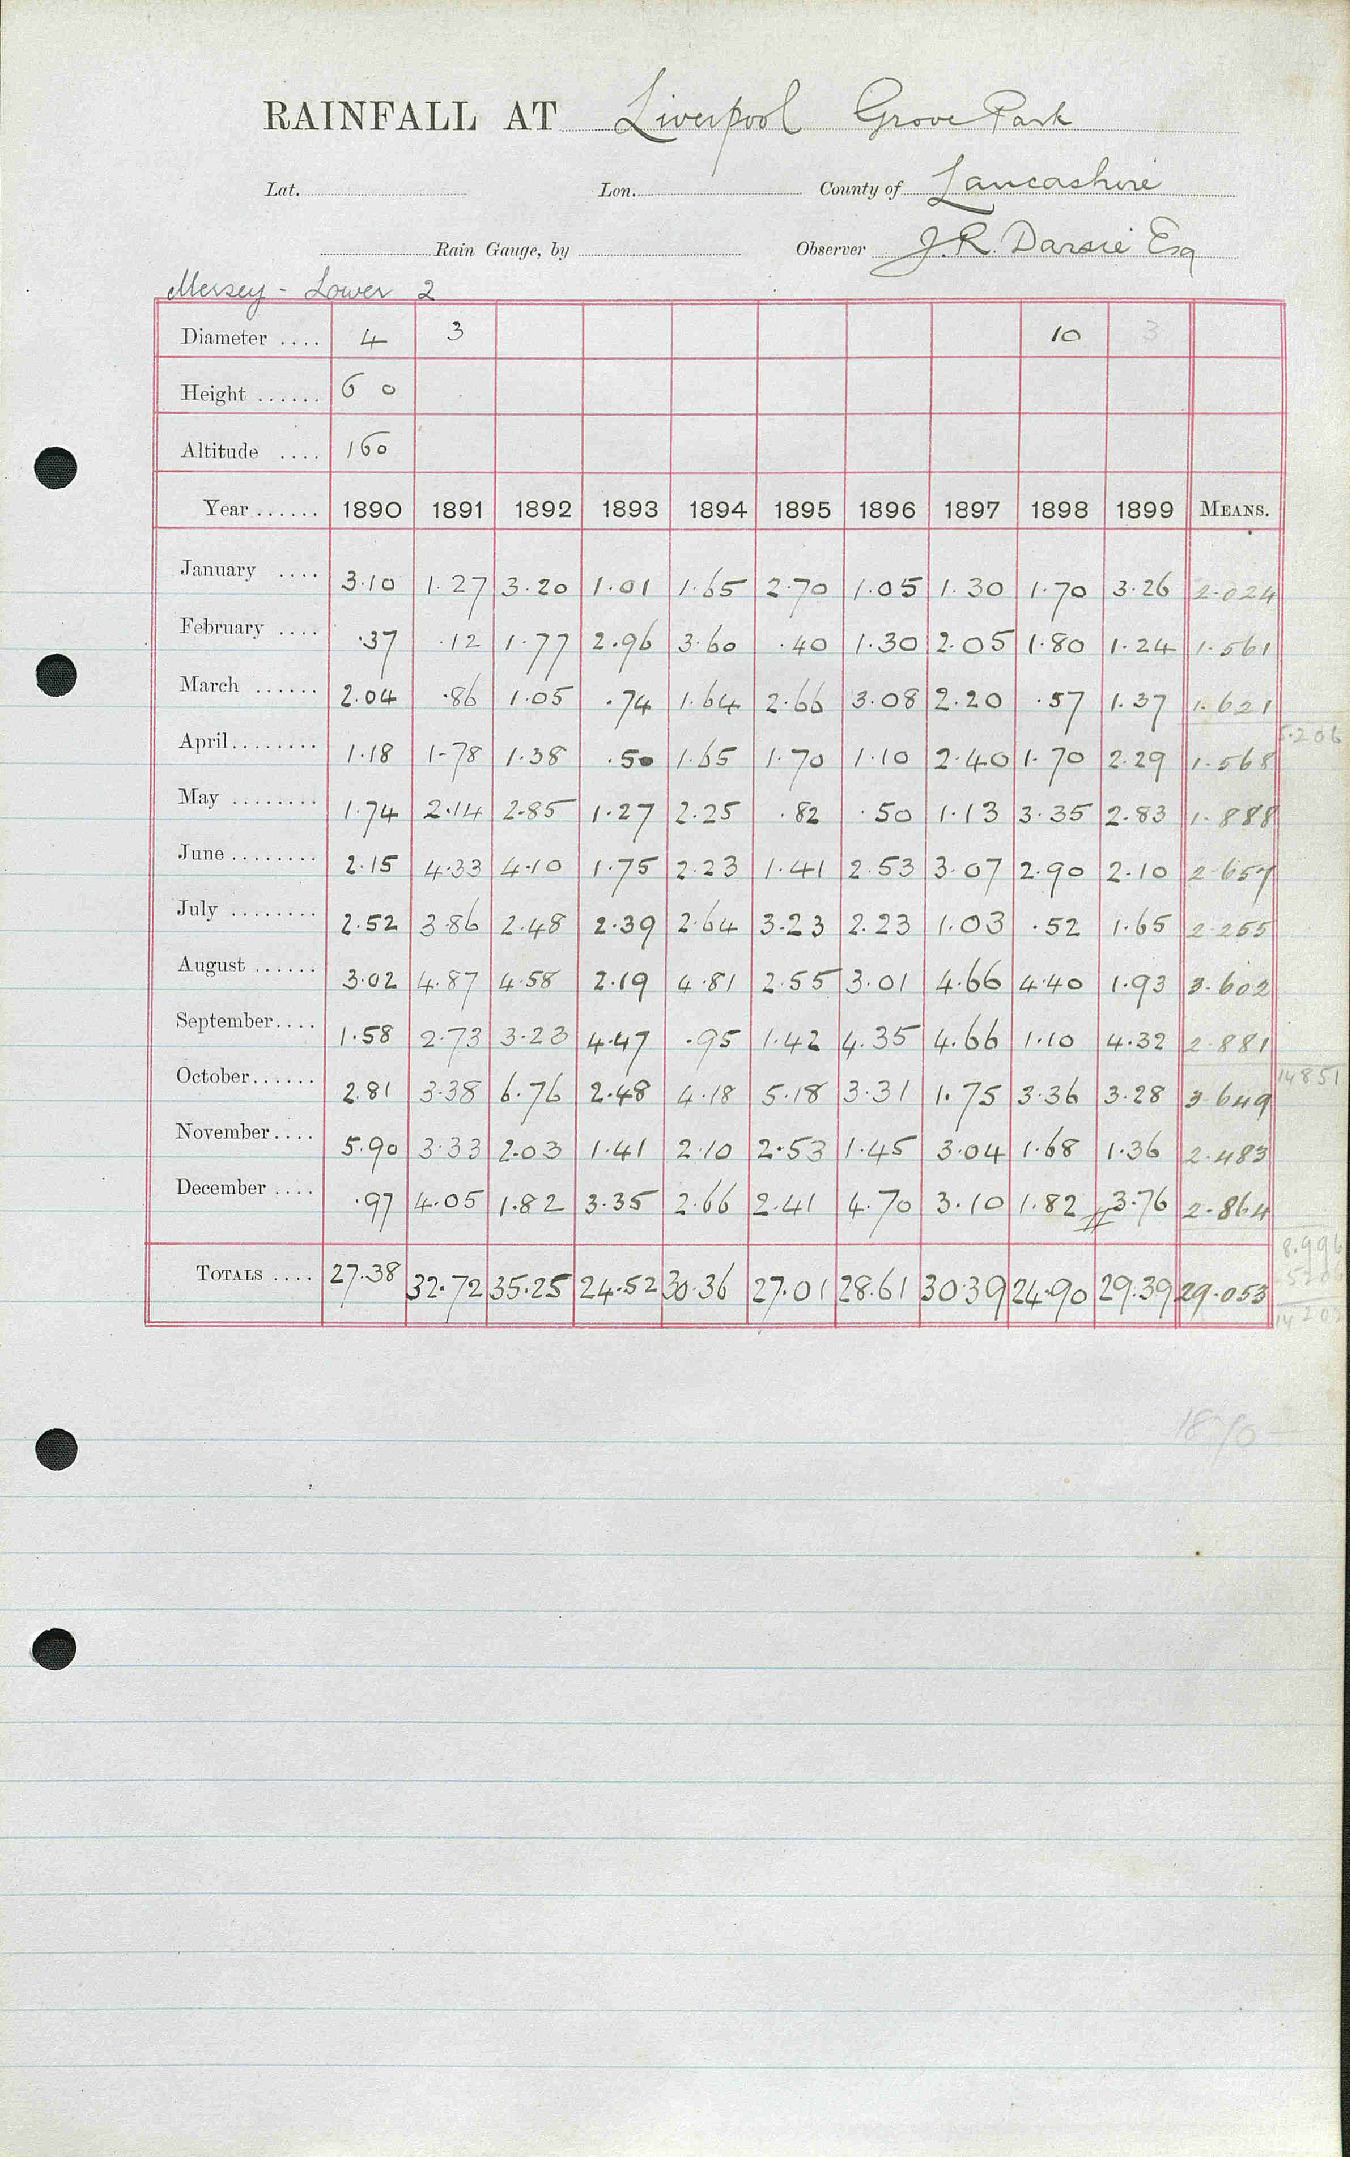 RAINFALL AT Liverpool Grove Park
Lat. Lon. County of Lancashire
Rain Gauge, by Observer J.R. Darsie Esq
Mersey - Lower 2
Diameter .... 4 3 10 3
Height ...... 6 0
Altitude .... 160
Year ...... 1890 1891 1892 1893 1894 1895 1896 1897 1898 1899 MEANS.
January .... 3.10 1.27 3.20 1.01 1.65 2.70 1.05 1.30 1.70 3.26 2.024
February .... .37 .12 1.77 2.96 3.60 .40 1.30 2.05 1.80 1.24 1.561
March ...... 2.04 .86 1.05 .74 1.64 2.66 3.08 2.20 .57 1.37 1.621
5.206
April ........ 1.18 1.78 1.38 .50 1.65 1.70 1.10 2.40 1.70 2.29 1.568
May ........ 1.74 2.14 2.85 1.27 2.25 .82 .50 1.13 3.35 2.83 1.888
June ........ 2.15 4.33 4.10 1.75 2.23 1.41 2.53 3.07 2.90 2.10 2.657
July ........ 2.52 3.86 2.48 2.39 2.64 3.23 2.23 1.03 .52 1.65 2.255
August ...... 3.02 4.87 4.58 2.19 4.81 2.55 3.01 4.66 4.40 1.93 3.602
September .... 1.58 2.73 3.23 4.47 .95 1.42 4.35 4.66 1.10 4.32 2.881
14851
October ...... 2.81 3.38 6.76 2.48 4.18 5.18 3.31 1.75 3.36 3.28 3.649
November .... 5.90 3.33 2.03 1.41 2.10 2.53 1.45 3.04 1.68 1.36 2.483
December .... .97 4.05 1.82 3.35 2.66 2.41 4.70 3.10 1.82 3.76 2.864
8.996
5206
TOTALS .... 27.38 32.72 35.25 24.52 30.36 27.01 28.61 30.39 24.90 29.39 29.053
14 202